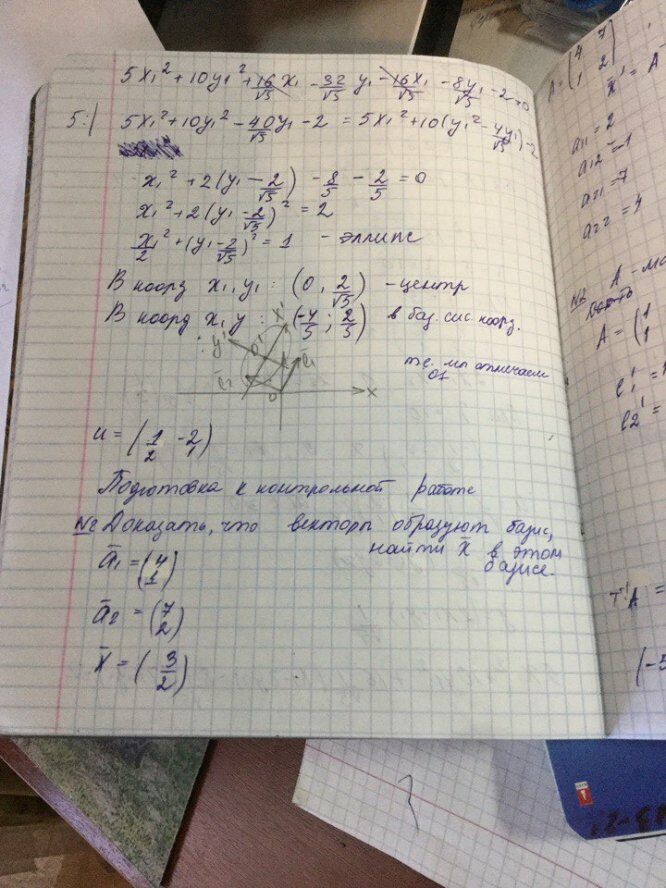 5x₁² + 10y₁² + 16/√5 x₁ - 32/√5 y₁ - 16x₁/√5 - 8y₁/√5 - 2 = 0
5:| 5x₁² + 10y₁² - 40/√5 y₁ - 2 = 5x₁² + 10(y₁² - 4y₁/√5) - 2
x₁² + 2(y₁ - 2/√5) - 8/5 - 2/5 = 0
x₁² + 2(y₁ - 2/√5)² = 2
x₁²/2 + (y₁ - 2/√5)² = 1 - эллипс
В коорд x₁, y₁ : (0, 2/√5) - центр
В коорд x, y : (-4/5 ; 2/5) в баз. сис. коорд.
y' x' O' e₂ e₁ O x
т.е. мы отмечаем O1
u = (1 -2
2 1)
Подготовка к контрольной работе
№2 Доказать, что векторы образуют базис,
найти x̄ в этом
базисе.
ā₁ = (4
1)
ā₂ = (7
2)
x̄ = (3
2)
A = (4 7
1 2)
x̄' = A
a₁₁ = 2
a₁₂ = -1
a₂₁ = 7
a₂₂ = 4
№2 A - ма
A = (1
1
e₁' = 1
e₂' =
T⁻¹A =
(-5